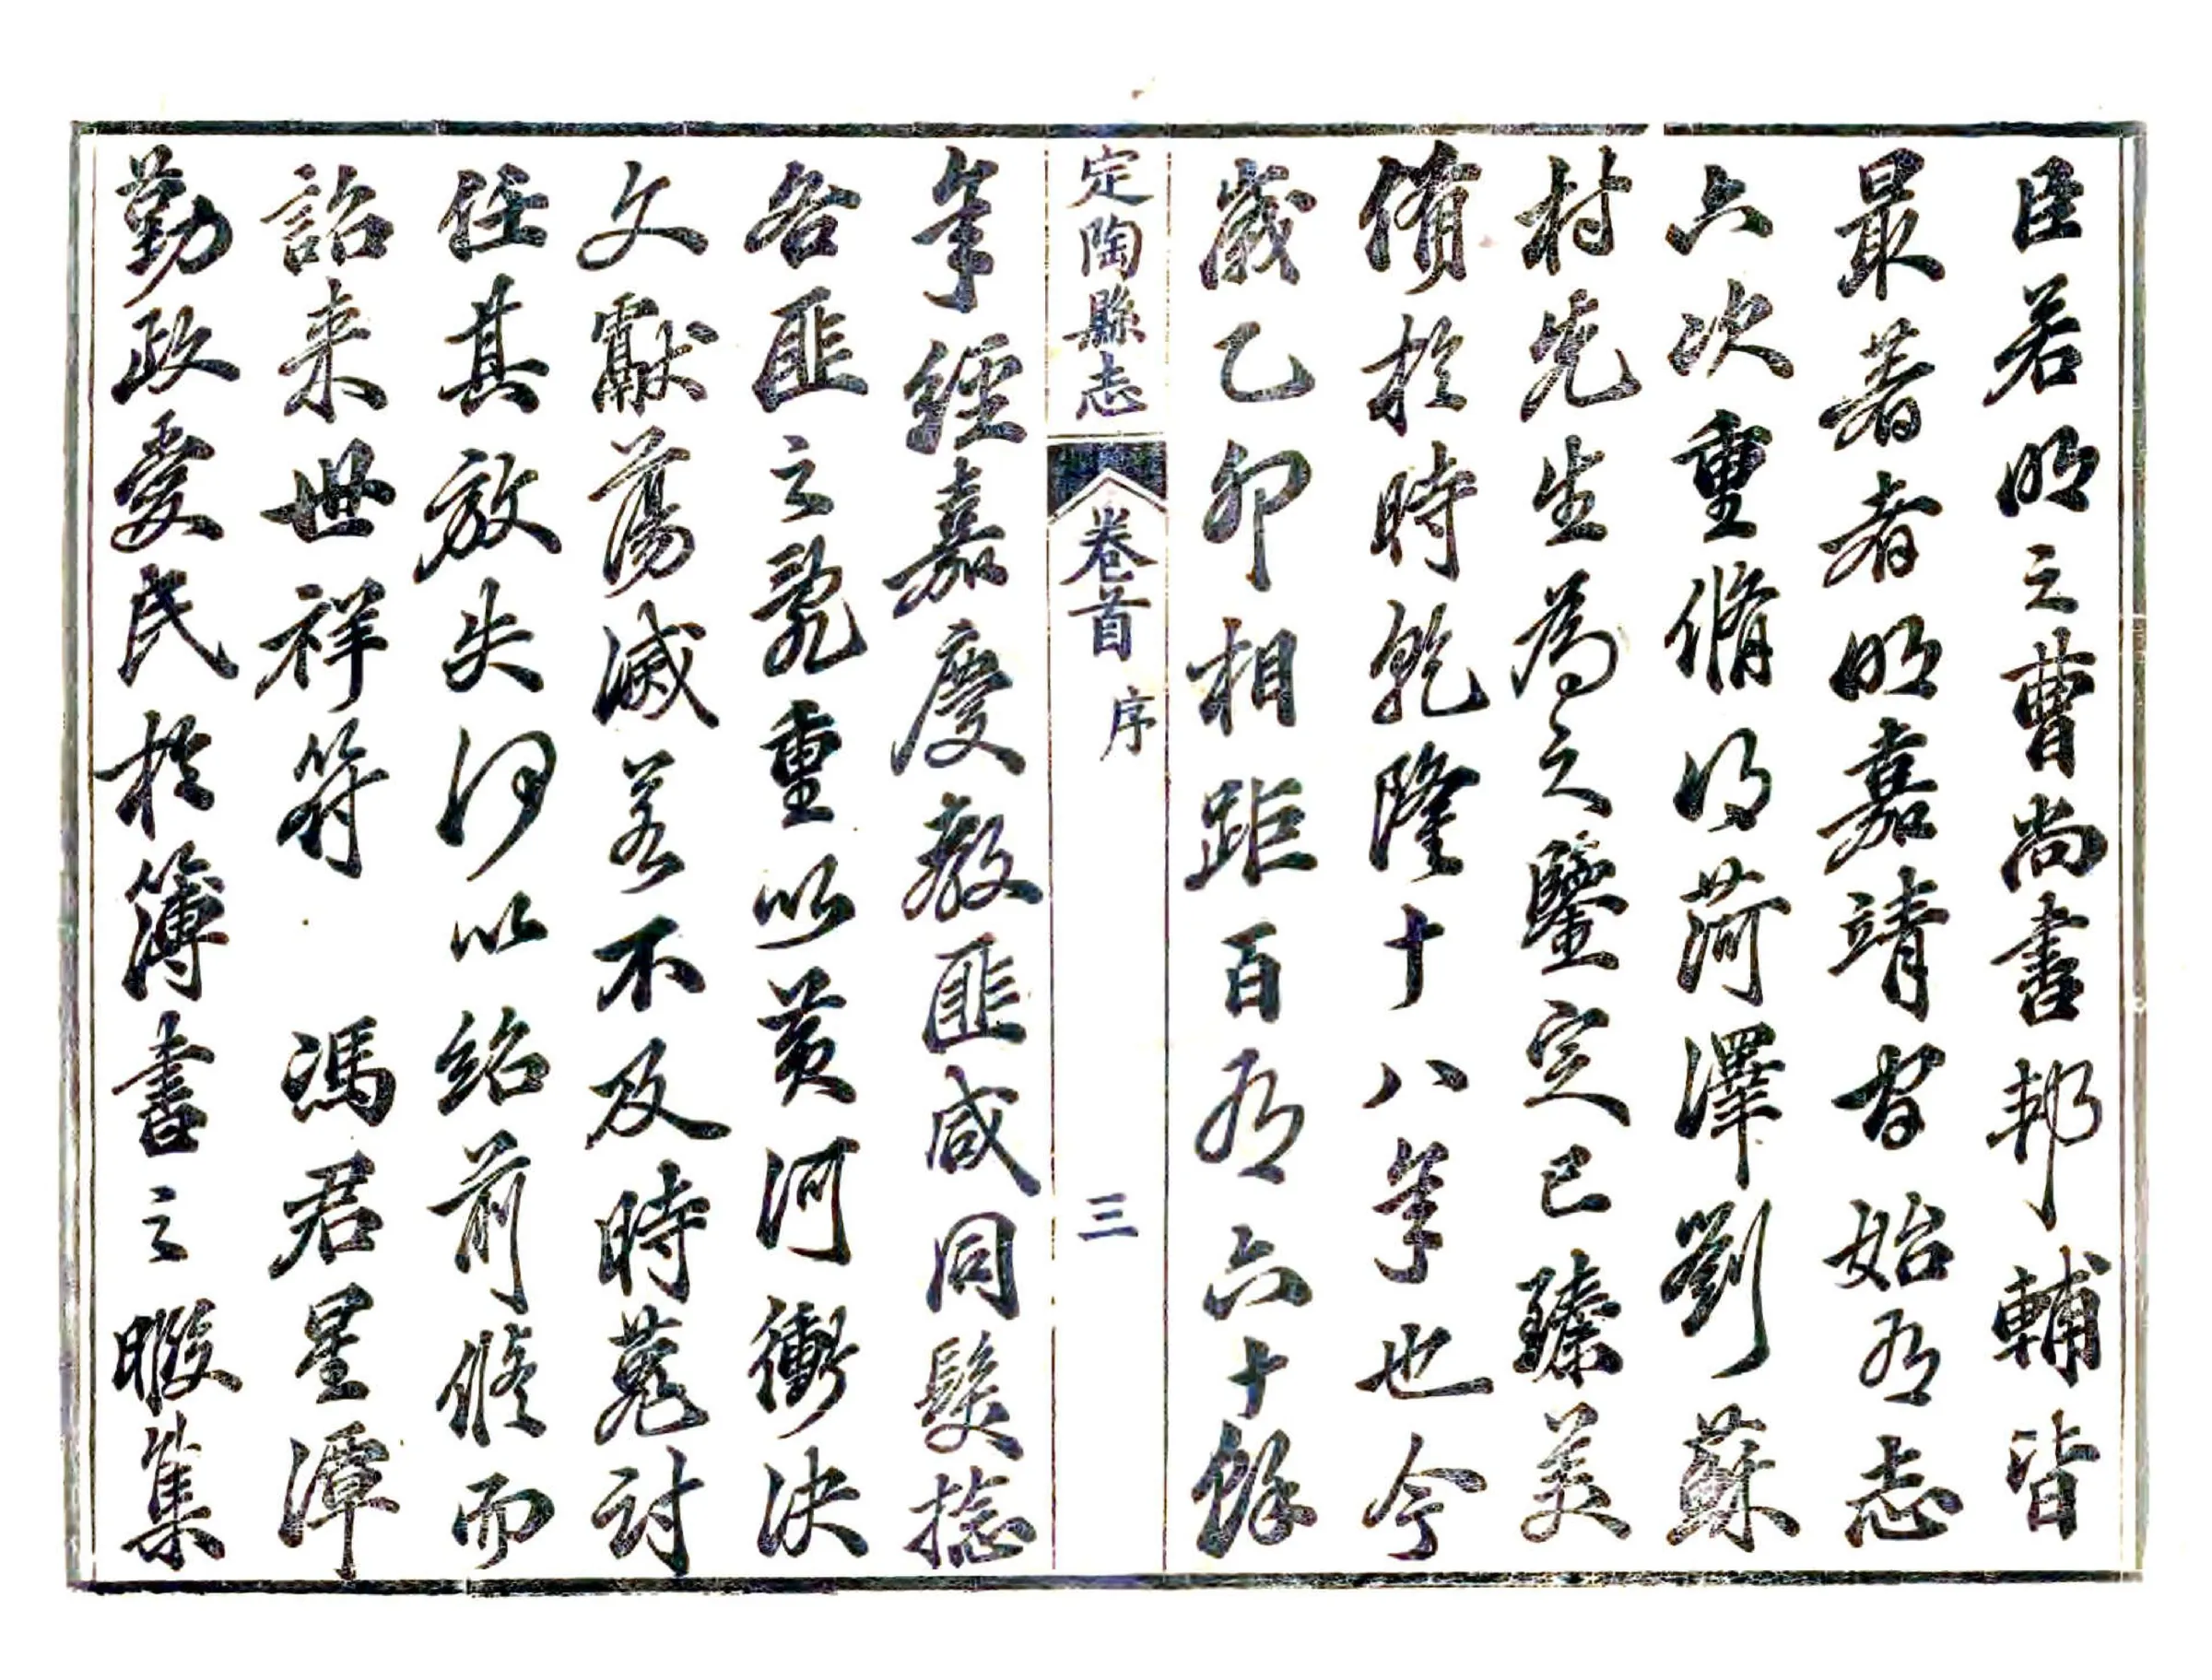 臣若明之曹尚書邦輔皆
最著者明嘉靖時始有志
六次重脩得菏澤劉蘇
村先生為之鑒定已臻美
備於時乾隆十八年也今
歲乙卯相距百有六十餘
定陶縣志 卷首 序 三
年經嘉慶教匪咸同髮捻
各匪之亂重以黃河衝決
文獻蕩滅若不及時蒐討
任其放失何以紹前脩而
詒来世祥符 馮君星潭
勤政愛民於簿書之暇集